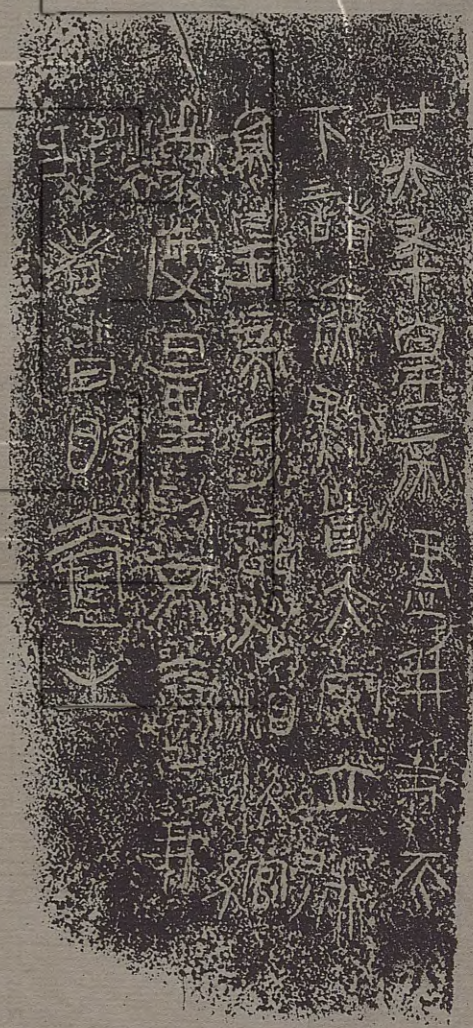 廿六年皇帝盡并兼天
下諸侯黔首大安立號
為皇帝乃詔丞相狀綰
灋度量則不壹歉
疑者皆明壹之